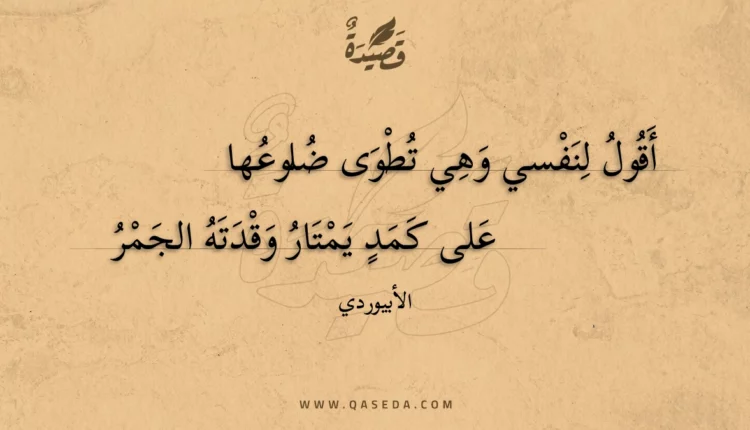 قَصِيْدَةٌ
أَقُولُ لِنَفْسي وَهِي تُطْوَى ضُلوعُها
عَلى كَمَدٍ يَمْتَارُ وَقْدَتَهُ الجَمْرُ
الأبيوردي
WWW.QASEDA.COM